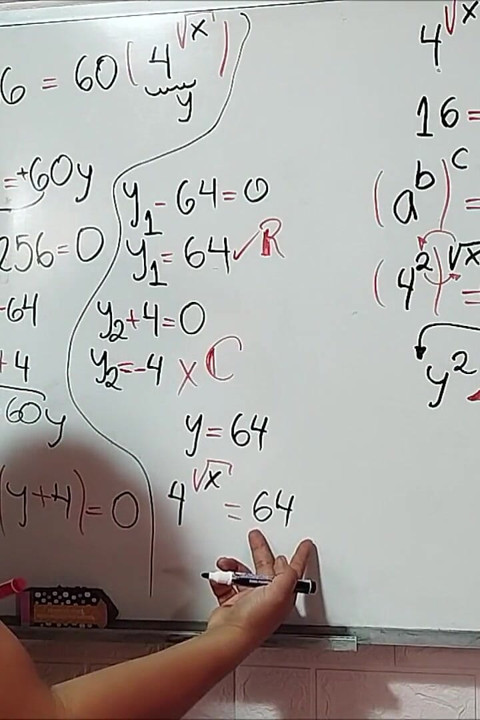 6 = 60(4^√x)
y
=+60y
256=0
-64
+4
60y
(y+4)=0
y₁-64=0
y₁=64✓R
y₂+4=0
y₂=-4 × C
y=64
4^√x = 64
4^√x
16=
(a^b)^c =
(4²)^√x =
y²